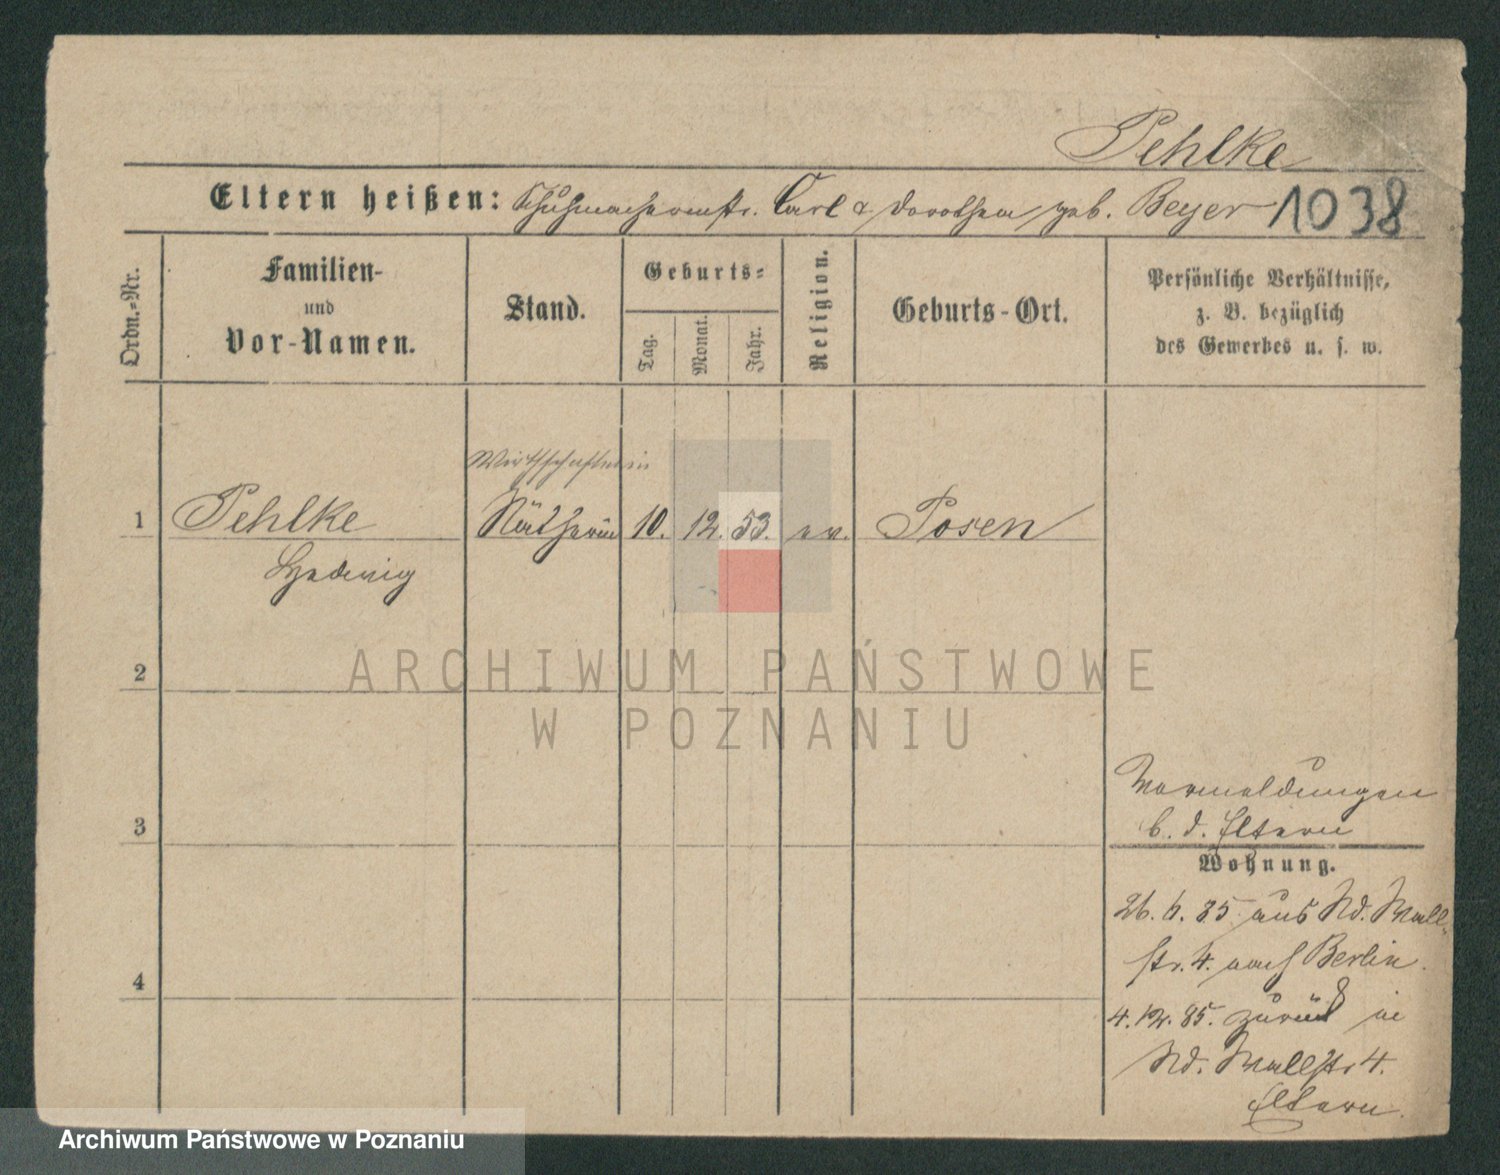 Pehlke
Eltern heißen: Schuhmachermstr. Carl & Dorothea geb. Beyer 1038
Ordn.-Nr.
Familien-
und
Vor-Namen.
Stand.
Geburts-
Tag.
Monat.
Jahr.
Religion.
Geburts-Ort.
Persönliche Verhältnisse,
z. B. bezüglich
des Gewerbes u. s. w.
1 Pehlke Nätherin 10. 12. 53. ev. Posen
Hedwig
2
ARCHIWUM PAŃSTWOWE
W POZNANIU
3
Vormeldungen
b. d. Eltern
Wohnung.
26. 6. 85 aus Nd. Wall-
str. 4. nach Berlin.
4
4. 12. 85. zurück in
Nd. Wallstr 4.
Eltern.
Archiwum Państwowe w Poznaniu